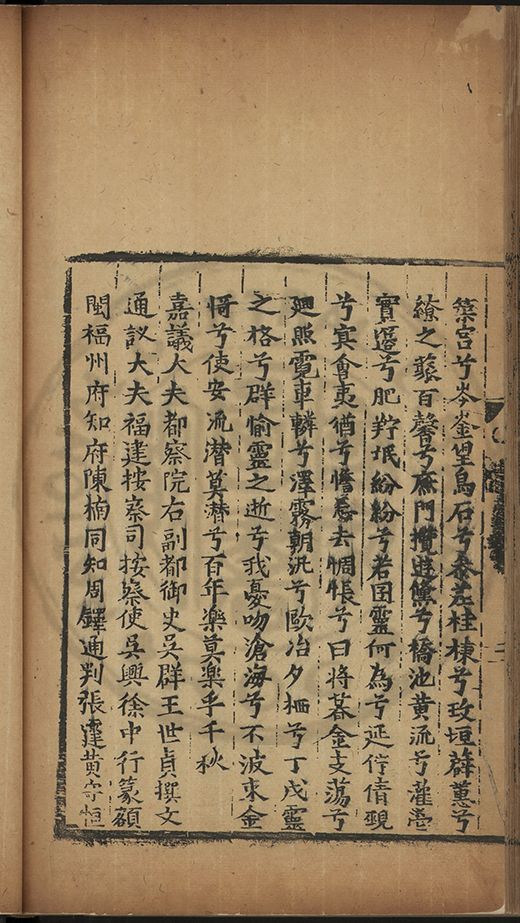 築宮兮岑崟皇烏石兮參差桂棟兮玫垣辟蕙兮
繚之蘓百馨兮廡門攬兮橋池黄流兮灌
實邊兮肥羜氓紛紛兮若困靈何為兮延佇倩覡
兮宾會夷猶兮憺忘去惆悵兮曰將暮金支蕩兮
廻照霓車轔兮澤霧朝汎兮歐冶夕栖兮丁戍靈
之格兮群愉靈之逝兮我憂吻滄海兮不波束金
堣兮使安流潜莫潜兮百年樂莫樂乎千秋
嘉議大夫都察院右副都御史吳群王世貞撰文
通議大夫福建按察司按察使吳興徐中行篆額
閩福州府知府陳楠同知周鐸通判張黄守恒